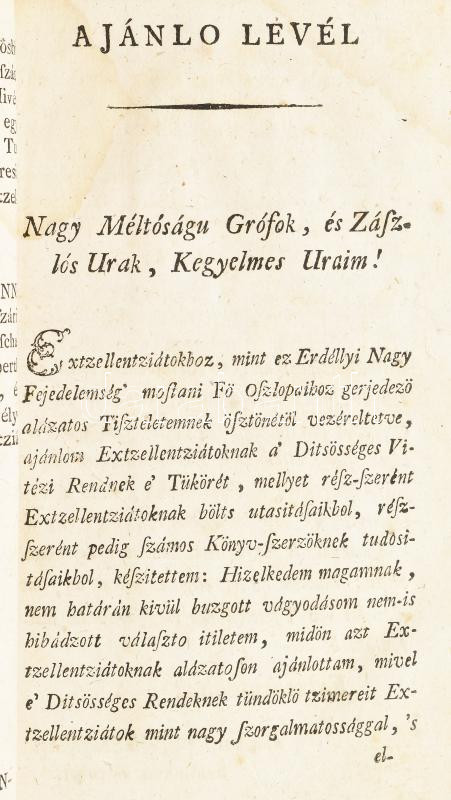 AJÁNLO LEVÉL
Nagy Méltóságu Grófok, és Zász-
lós Urak, Kegyelmes Uraim!
Extzellentziátokhoz, mint ez Erdéllyi Nagy
Fejedelemség' moſtani Fö Oſzlopaihoz gerjedezö
alázatos Tiſztéletemnek öſztönétöl vezéreltetve,
ajánlom Extzellentziátoknak a' Ditsösséges Vi-
tézi Rendnek e' Tükörét, mellyet réſz-ſzerént
Extzellentziátoknak bölts utasitáſaikbol, réſz-
ſzerént pedig ſzámos Könyv-ſzerzöknek tudósi-
táſaikbol, kéſzitettem: Hizelkedem magamnak,
nem határán kivül buzgott vágyodásom nem-is
hibádzott válaſzto itiletem, midön azt Ex-
tzellentziátoknak alázatoſon ajánlottam, mivel
e' Ditsösséges Rendeknek tündöklö tzimereit Ex-
tzellentziátok mint nagy ſzorgalmatossággal, 's
el-